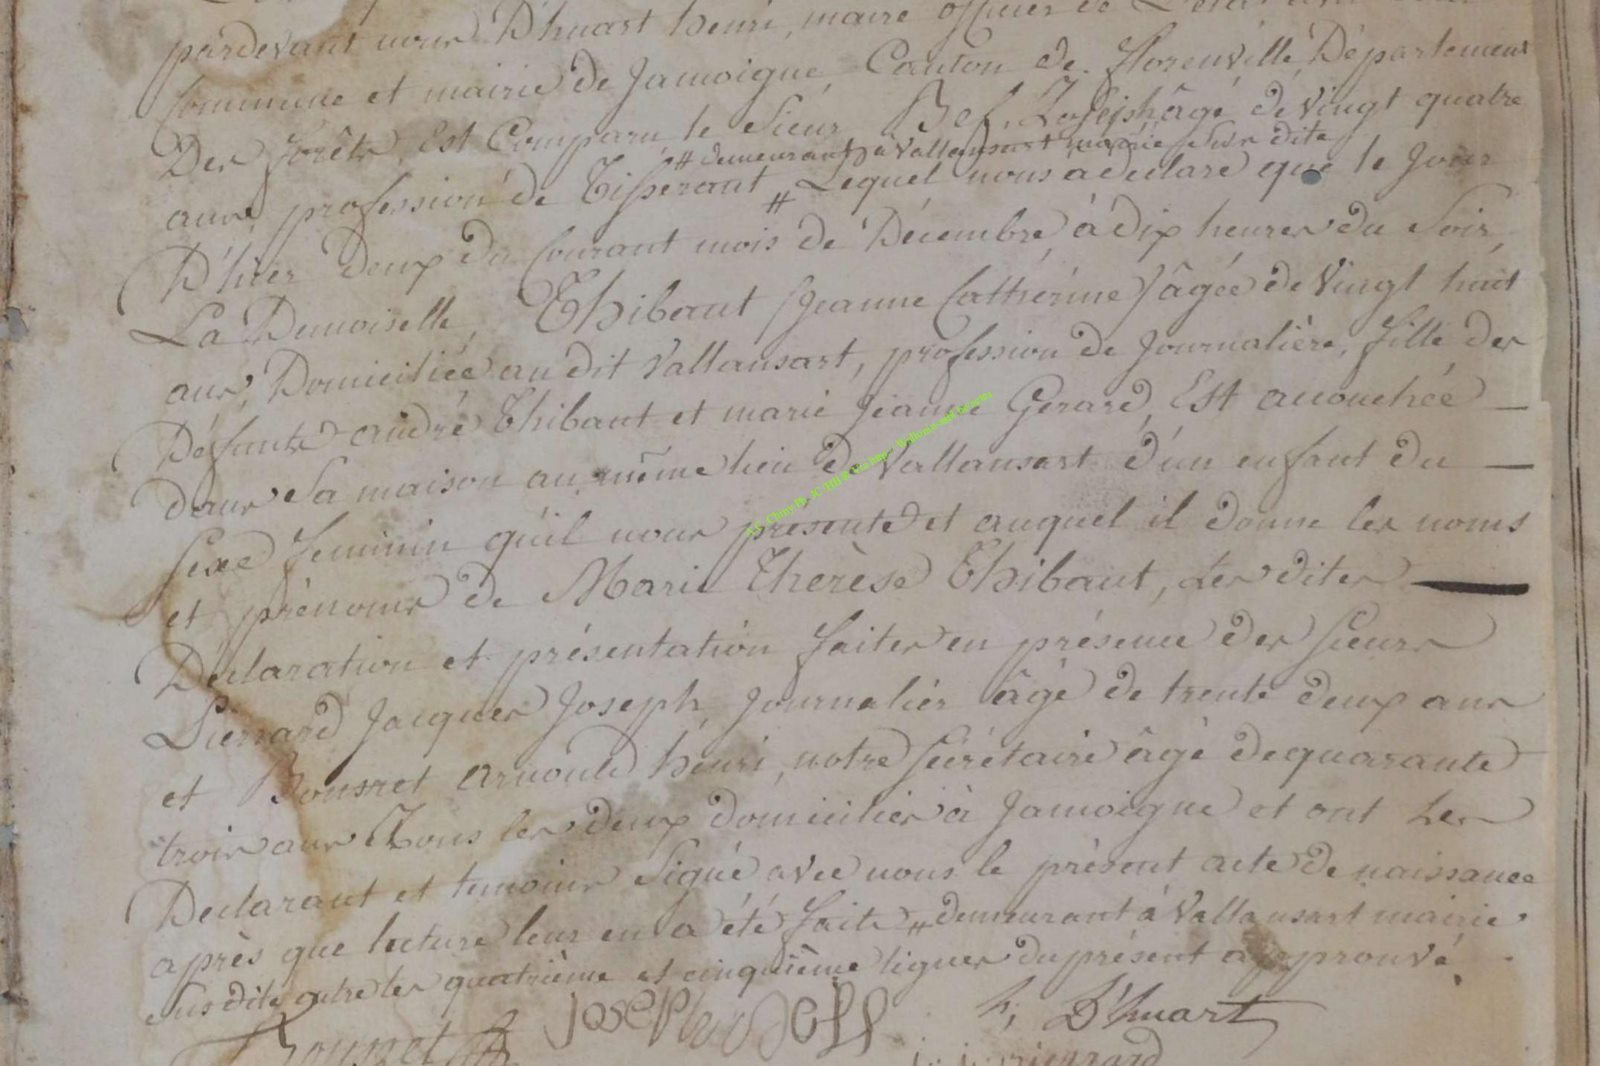 pardevant nous D'huart henri, maire officier de L'état
Commune et mairie de Jamoigne, Canton de florenville Département
Des forêts, Est Comparu, le Sieur Bof, Joseph âgé de vingt quatre
# demeurant à Vallansart mairie susdite
ans, profession de Tisserant # Lequel nous a declaré que le Jour
D'hier deux du Courant mois de Décembre, à dix heures du Soir,
La Demoiselle, Thibaut (Jeanne Cathérine) âgée de Vingt huit
ans, Domiciliée au dit Vallansart, profession de Journalière, fille des
Défunts andré Thibaut et marie Jeanne Gerard, Est accouchée —
dans Sa maison au même lieu de Vallansart d'un enfant du —
Sexe feminin qu'il nous présente et auquel il donne les noms
et prénoms de Marie Therèse Thibaut, Les dites —
Déclaration et présentation faites en présence des sieurs
Pierrard Jacques Joseph, Journaliér âgé de trente deux ans
et Rousret arnould hénri, notre sécrétaire âgé de quarante
trois ans Tous les deux domiciliés à Jamoigne et ont Les
Declarant et temoins Signé avec nous le présent acte de naissance
après que lecture leur en a été faite # demeurant à Vallansart mairie
Susdite entre les quatrième et cinquième lignes du présent approuvé.
joseph boff h; D'huart
Rousret pierrard